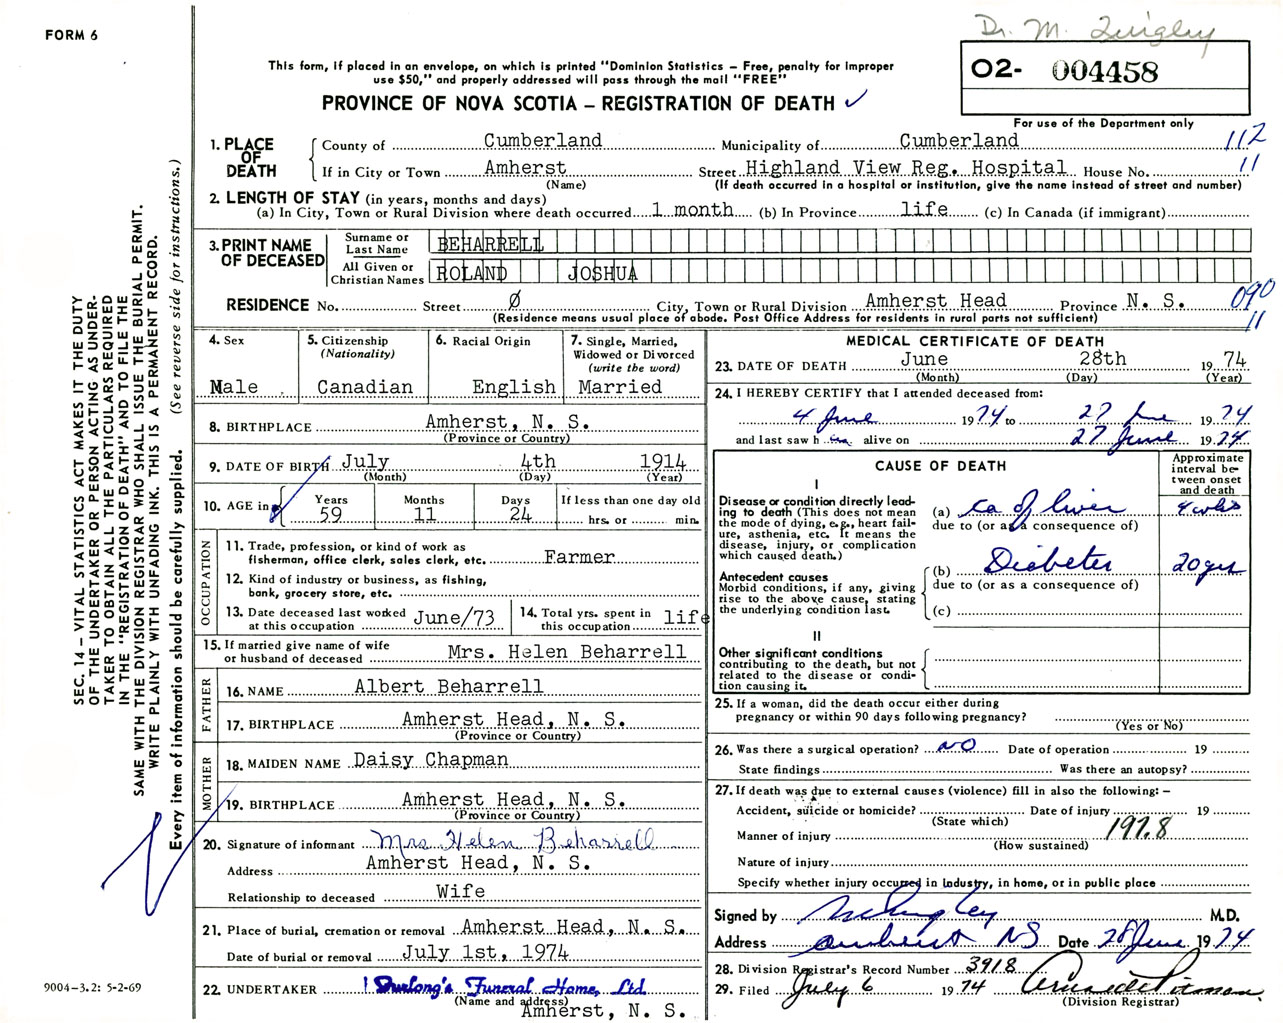 Dr. M. Quigley
FORM 6
O2- 004458
This form, if placed in an envelope, on which is printed "Dominion Statistics – Free, penalty for improper
use $50," and properly addressed will pass through the mail "FREE"
PROVINCE OF NOVA SCOTIA – REGISTRATION OF DEATH ✓
For use of the Department only
SEC. 14 – VITAL STATISTICS ACT MAKES IT THE DUTY
OF THE UNDERTAKER OR PERSON ACTING AS UNDER-
TAKER TO OBTAIN ALL THE PARTICULARS REQUIRED
IN THE "REGISTRATION OF DEATH" AND TO FILE THE
SAME WITH THE DIVISION REGISTRAR WHO SHALL ISSUE THE BURIAL PERMIT.
WRITE PLAINLY WITH UNFADING INK. THIS IS A PERMANENT RECORD.
Every item of information should be carefully supplied. (See reverse side for instructions.)
1. PLACE OF DEATH
County of Cumberland Municipality of Cumberland 112
If in City or Town Amherst Street Highland View Reg. Hospital House No. 11
(Name) (If death occurred in a hospital or institution, give the name instead of street and number)
2. LENGTH OF STAY (in years, months and days)
(a) In City, Town or Rural Division where death occurred 1 month (b) In Province life (c) In Canada (if immigrant)
3. PRINT NAME OF DECEASED
Surname or Last Name BEHARRELL
All Given or Christian Names ROLAND JOSHUA
RESIDENCE No. Street Ø City, Town or Rural Division Amherst Head Province N. S. 090
(Residence means usual place of abode. Post Office Address for residents in rural parts not sufficient) 11
4. Sex
Male
5. Citizenship (Nationality)
Canadian
6. Racial Origin
English
7. Single, Married, Widowed or Divorced (write the word)
Married
8. BIRTHPLACE Amherst, N. S.
(Province or Country)
9. DATE OF BIRTH July 4th 1914
(Month) (Day) (Year)
10. AGE in Years 59 Months 11 Days 24 If less than one day old hrs. or min.
OCCUPATION
11. Trade, profession, or kind of work as
fisherman, office clerk, sales clerk, etc. Farmer
12. Kind of industry or business, as fishing,
bank, grocery store, etc.
13. Date deceased last worked at this occupation June/73
14. Total yrs. spent in this occupation life
15. If married give name of wife
or husband of deceased Mrs. Helen Beharrell
FATHER
16. NAME Albert Beharrell
17. BIRTHPLACE Amherst Head, N. S.
(Province or Country)
MOTHER
18. MAIDEN NAME Daisy Chapman
19. BIRTHPLACE Amherst Head, N. S.
(Province or Country)
20. Signature of informant Mrs Helen Beharrell
Address Amherst Head, N. S.
Relationship to deceased Wife
21. Place of burial, cremation or removal Amherst Head, N. S.
Date of burial or removal July 1st, 1974
22. UNDERTAKER Furlong's Funeral Home, Ltd.
(Name and address)
Amherst, N. S.
9004-3.2: 5-2-69
MEDICAL CERTIFICATE OF DEATH
23. DATE OF DEATH June 28th 1974
(Month) (Day) (Year)
24. I HEREBY CERTIFY that I attended deceased from:
4 June 1974 to 27 June 1974
and last saw h im alive on 27 June 1974
CAUSE OF DEATH
Approximate interval between onset and death
I
Disease or condition directly lead-
ing to death (This does not mean
the mode of dying, e.g., heart fail-
ure, asthenia, etc. It means the
disease, injury, or complication
which caused death.)
(a) Ca of liver 4 wks
due to (or as a consequence of)
Antecedent causes
Morbid conditions, if any, giving
rise to the above cause, stating
the underlying condition last.
(b) Diabetes 20 yrs
due to (or as a consequence of)
(c)
II
Other significant conditions
contributing to the death, but not
related to the disease or condi-
tion causing it.
25. If a woman, did the death occur either during
pregnancy or within 90 days following pregnancy?
(Yes or No)
26. Was there a surgical operation? NO Date of operation 19
State findings Was there an autopsy?
27. If death was due to external causes (violence) fill in also the following: –
Accident, suicide or homicide? Date of injury 19
(State which)
Manner of injury 197.8
(How sustained)
Nature of injury
Specify whether injury occurred in Industry, in home, or in public place
Signed by M Quigley M.D.
Address Amherst NS Date 28 June 1974
28. Division Registrar's Record Number 3918
29. Filed July 6 1974
(Division Registrar)